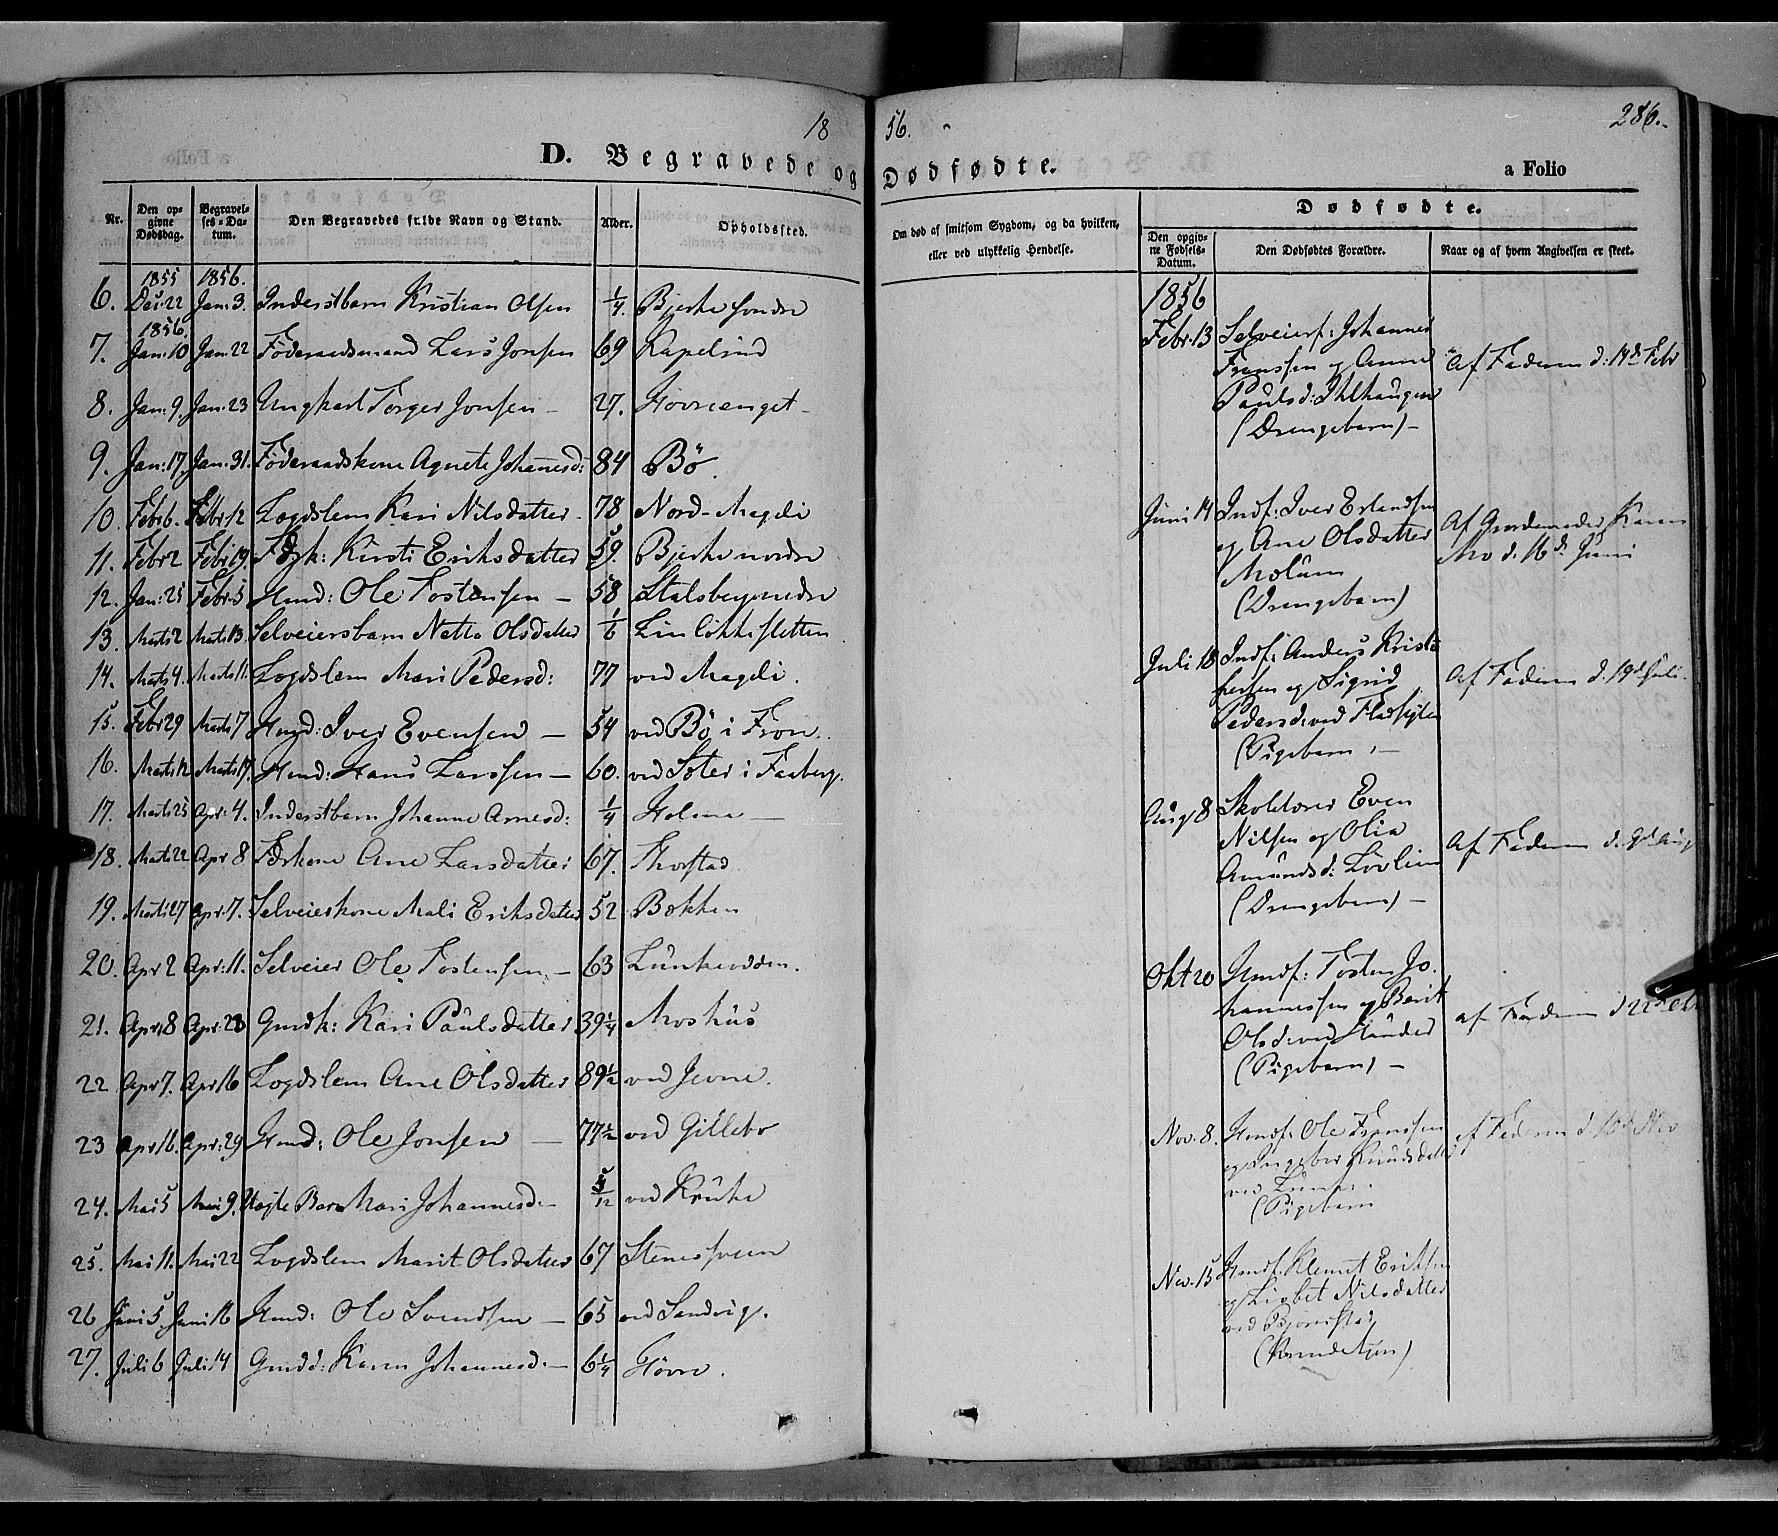 1856.
286.
D. Begravede og Dødfødte.
a Folio
Nr. Den opgivne Dødsdag. Begravelses-Datum. Den Begravedes fulde Navn og Stand. Alder. Opholdssted.
Om død af smitsom Sygdom, og da hvilken, eller ved ulykkelig Hendelse.
Dødfødte.
Den opgivne Fødsels-Datum. Den Dødfødtes Forældre. Naar og af hvem Angivelsen er skeet.
1855 1856.
6. Dec: 22 Jan: 3. Inderstbarn Kristian Olsen 1/4. Bjerke søndre
1856.
7. Jan: 10 Jan: 22 Föderaadsmand Lars Jonsen 69 Kapelrud
8. Jan: 9. Jan: 23 Ungkarl Torger Jonsen – 27. Hovreenget –
9. Jan: 17. Jan: 31. Föderaadskone Agnete Johannesd: 84 Bö.
10. Febr 6. Febr 12 Logdslem Kari Nilsdatter 78 Nord-Mageli
11. Febr 2 Febr 19. Fdrk: Kirsti Eriksdatter 59. Bjerke nordre
12. Jan: 25 Febr. 5 Hmd: Ole Tostensen – 58 Stalsberg nedre
13. Marts 2 Marts 13. Selveiersbarn Nette Olsdatter 1/6 Linlökkesletten
14. Marts 4. Marts 11. Logdslem Mari Pedersd: 77 ved Mageli.
15. Febr 29 Marts 7 Hmd: Iver Evensen – 54 ved Bö i Fron.
16. Marts 12 Marts 17. Hmd: Hans Larssen – 60. ved Soter i Faaberg.
17. Marts 25 Apr: 4. Inderstbarn Johanne Arnesd: 1/4 Holma –
18. Marts 22 Apr 8 Fdrkone Ane Larsdatter 67. Thorstad
19. Marts 27 Apr. 7. Selveierkone Mali Eriksdatter 52 Bakken
20. Apr 2 Apr: 11. Selveier Ole Tostensen. – 63 Lunkeodden.
21. Apr. 8 Apr: 23 Gmdk: Kari Paulsdatter 39 1/4 Moshus
22. Apr 7. Apr 16 Logdslem Ane Olsdatter 89 1/2 ved Jevne.
23 Apr 16. Apr: 29 Hmd: Ole Jonsen – 77 1/2 ved Gillebo
24. Mai 5 Mai 9. Uægte Barn Mari Johannesd. – 5/12 ved Kruke
25. Mai 11. Mai 22 Logdslem Marit Olsdatter 67 Stenersveen
26 Juni 5. Juni 16 Hmd: Ole Svendsen – 65 ved Sandvig.
27. Juli 6 Juli 14 Gmdd: Karen Johannesd. – 6 1/4 Hovre.
1856
Febr. 13 Selveierf: Johannes
Franssen og Anne
Paulsd: Ihlhaugen
(Drengebarn) –
Af Faderen d: 14d Febr
Juni 14 Indf: Iver Erlandsen
og Ane Olsdatter
Mælum
(Drengebarn)
Af Jordemoder Karen
Mo d. 16d Juni
Juli 18 Indf: Anders Kristo
fersen og Sigrid
Pedersd: ved
(Pigebarn) –
Af Faderen d. 19d Juli.
Aug 8 Skolelærer Even
Nilsen og Olia
Amundsd: Lövlien
(Drengebarn) –
Af Faderen d. 9d Aug
Okt 20 Hmdf: Tosten Jo-
hannessen og Berit
Olsd: ved
(Pigebarn) –
af Faderen d 22d Okt
Nov. 8. Hmdf: Ole
og Ingebor Knudsdatter
ved
(Pigebarn
af Faderen d. 10d Nov
Nov. 15 Hmdf. Klemet Eriksen
og Lisbet Nilsdatter
ved Björnstad